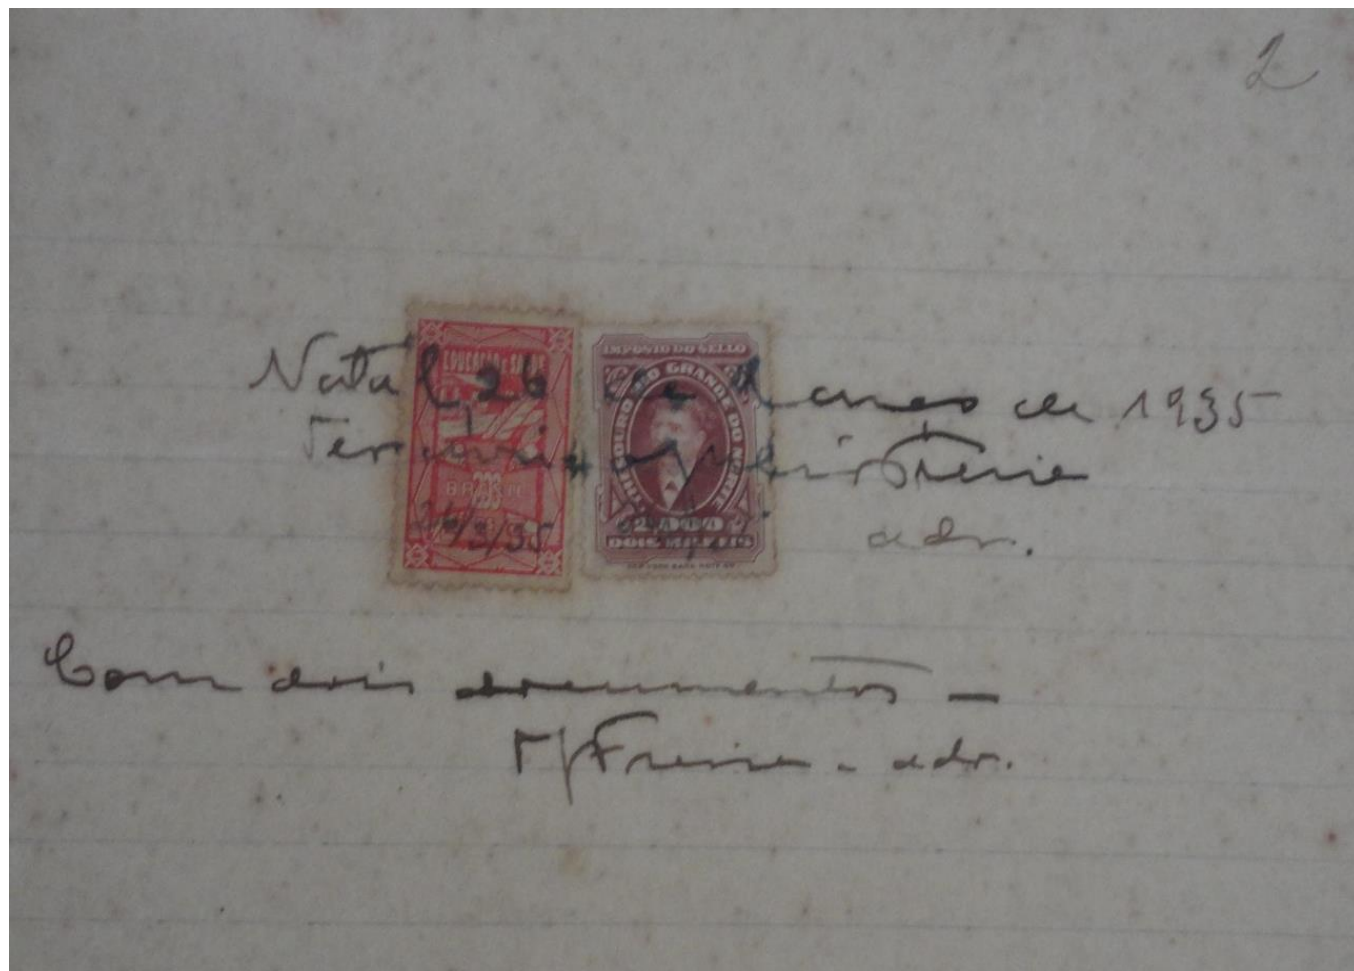 2
Natal, 26 de Março de 1935
Freire
adv.
EDUCAÇÃO E SAUDE
BRASIL
200
26/3/35
IMPOSTO DO SELLO
THESOURO RIO GRANDE DO NORTE
DOIS MIL REIS
Com dois documentos —
T/Freire - adv.